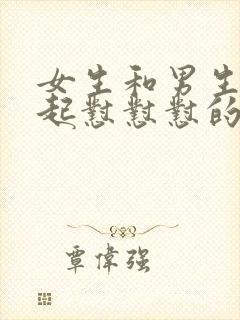 女生和男生
起懟懟懟的
覃偉强